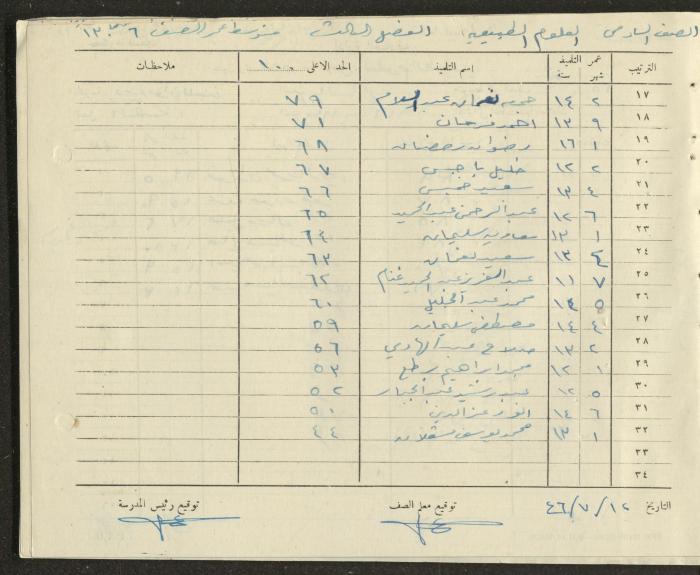 الصف السادس العلوم الطبيعية الفصل الثالث متوسط عمر الصف ٦ ١٣
الترتيب عمر التلميذ شهر سنة اسم التلميذ الحد الاعلى ١٠٠ ملاحظات
١٧ ٢ ١٤ نعمان عبد السلام ٧٩
١٨ ٩ ١٣ احمد فرحان ٧١
١٩ ١ ١٦ رضوان رمضان ٦٨
٢٠ ٢ ١٢ خليل ٦٧
٢١ ٤ ١٣ سعيد خميس ٦٦
٢٢ ٦ ١٢ عبد الرحمن عبد الحميد ٦٥
٢٣ ١ ١٣ سليمان ٦٤
٢٤ ٤ ١٣ سعيد نعمان ٦٣
٢٥ ٧ ١١ عبد العزيز عبد الحميد غنام ٦٢
٢٦ ٥ ١٤ محمد عبد الجليل ٦٠
٢٧ ٤ ١٤ مصطفى سليمان ٥٩
٢٨ ٢ ١٣ صلاح عبد الهادي ٥٦
٢٩ ١ ١٢ ابراهيم ٥٣
٣٠ ٥ ١٢ رشيد عبد الجبار ٥٢
٣١ ٦ ١٤ انور عز الدين ٥١
٣٢ ١ ١٣ محمد يوسف ٤٤
٣٣
٣٤
التاريخ ١٢/٧/٤٦ توقيع معلم الصف توقيع رئيس المدرسة